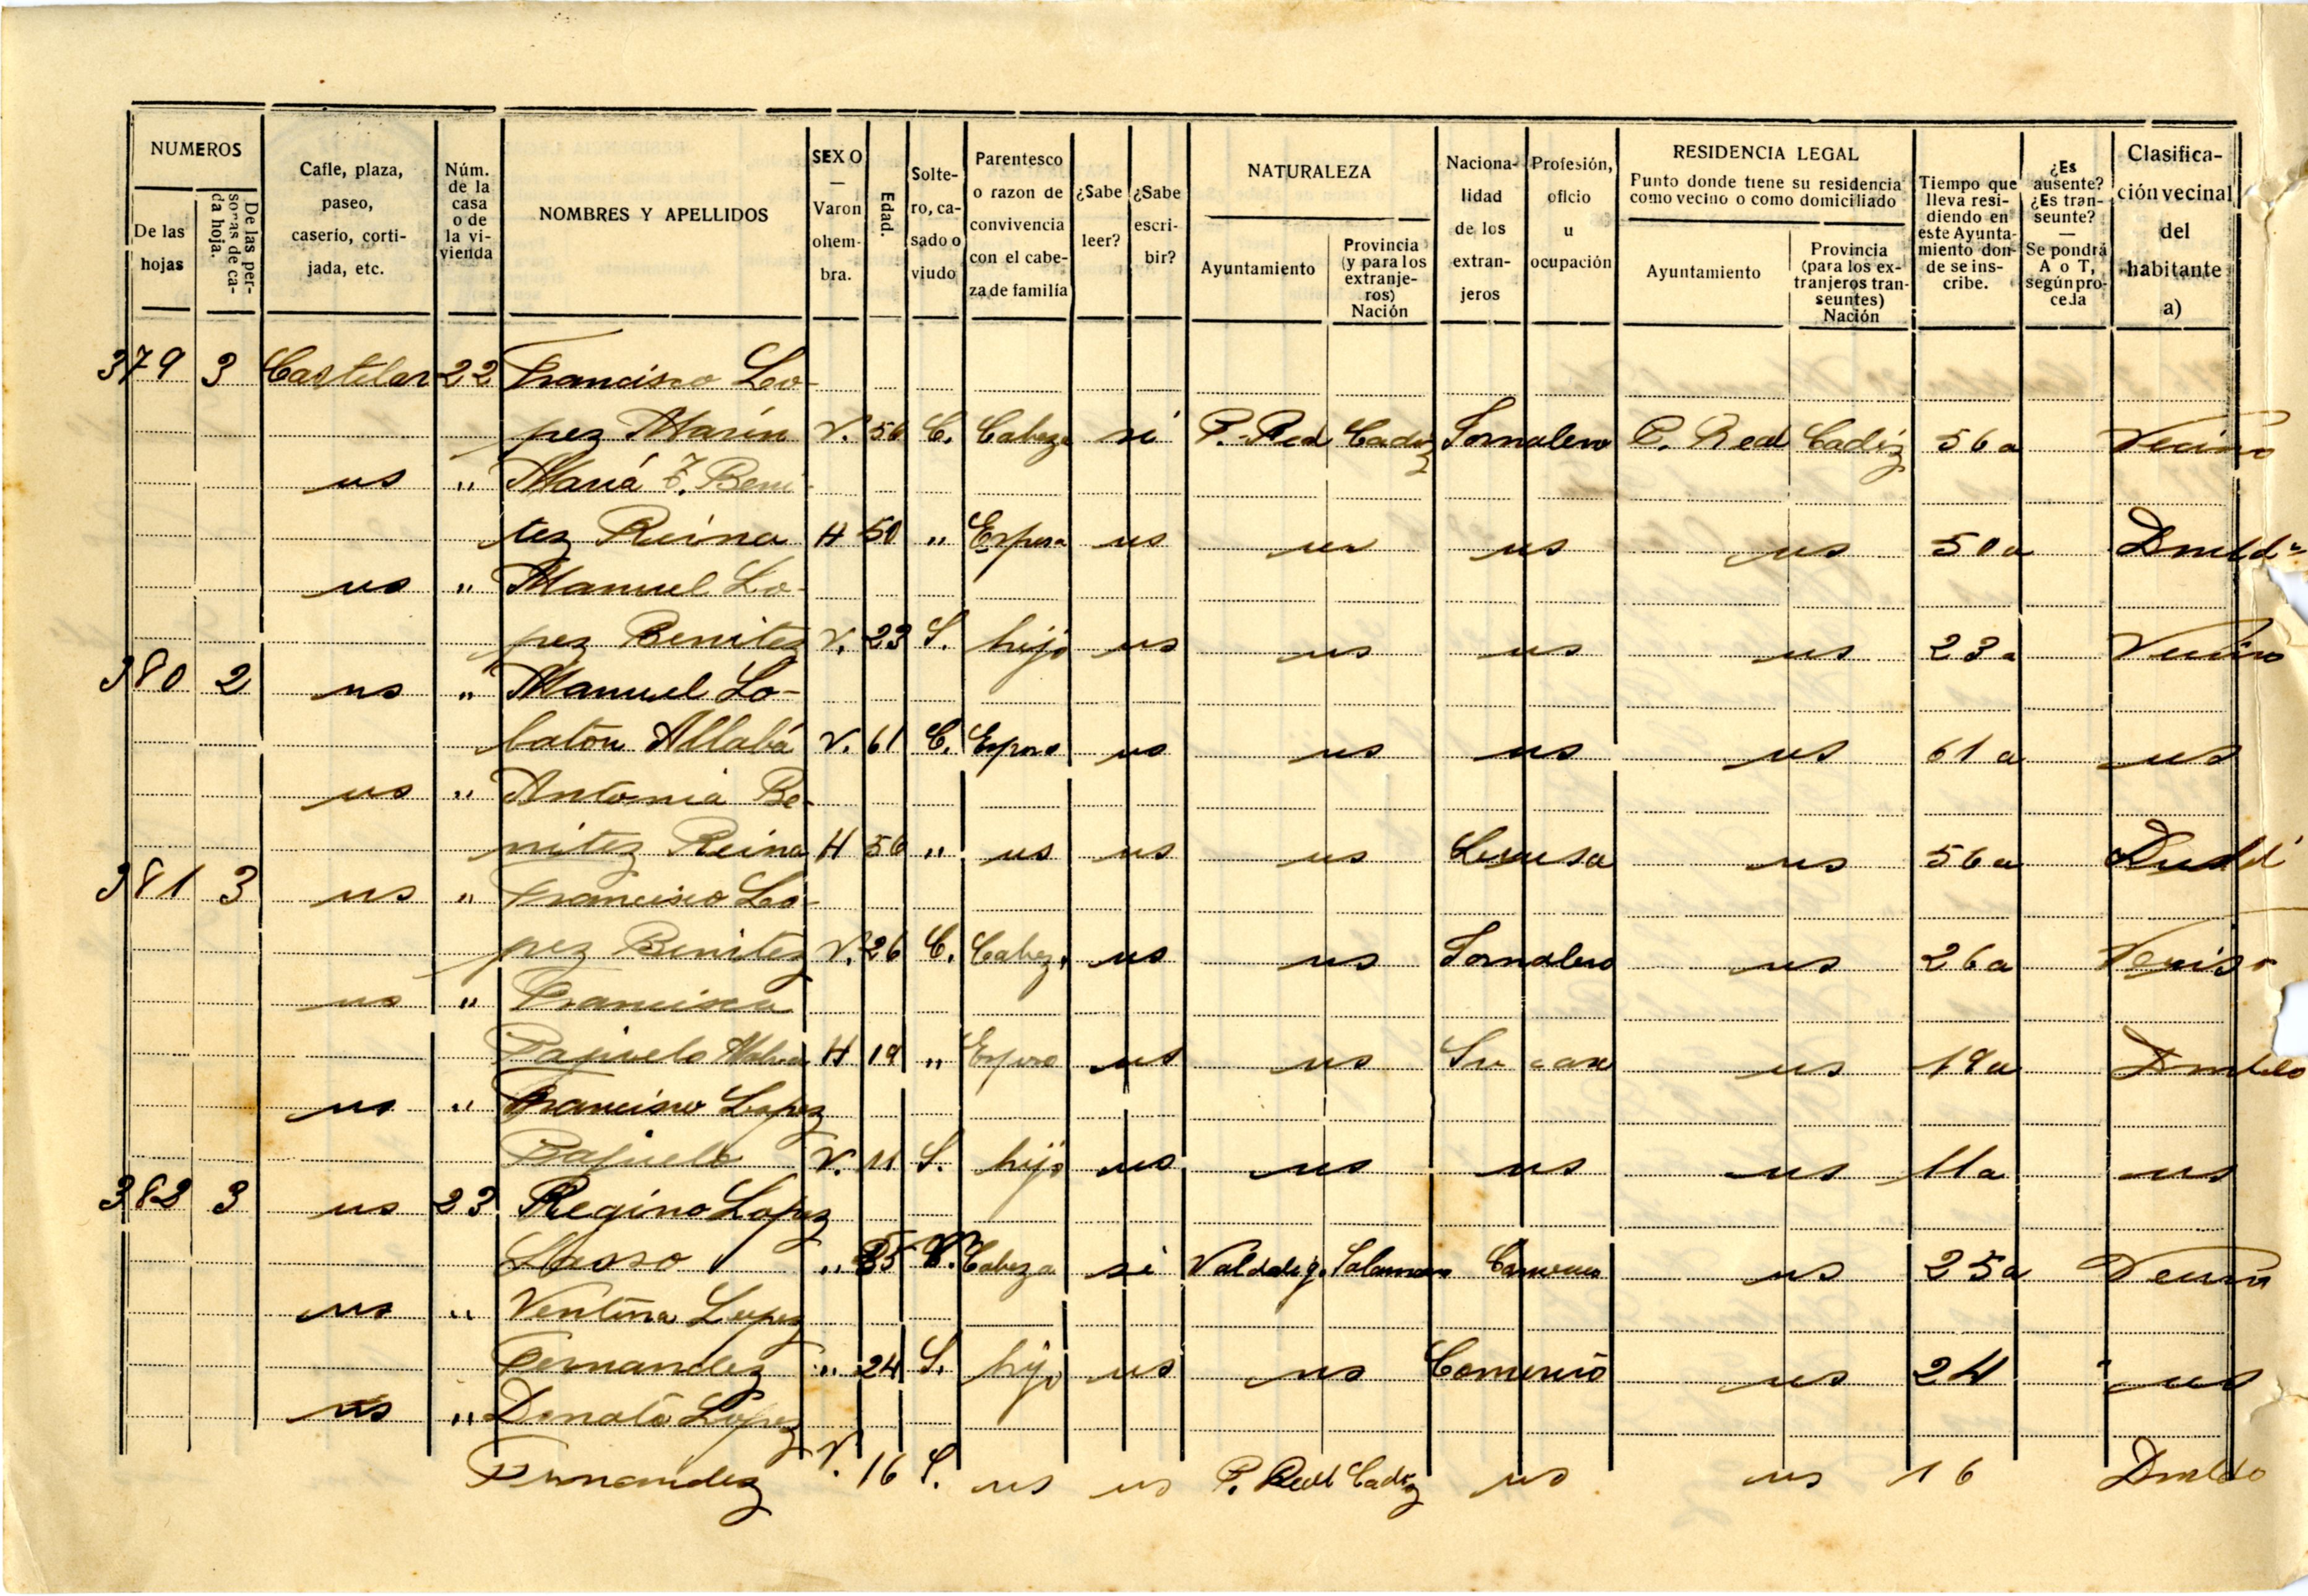 NUMEROS
De las hojas
De las personas de cada hoja.
Calle, plaza, paseo, caserio, cortijada, etc.
Núm. de la casa o de la vivienda
NOMBRES Y APELLIDOS
SEXO — Varon o hembra.
Edad.
Soltero, casado o viudo
Parentesco o razon de convivencia con el cabeza de familia
¿Sabe leer?
¿Sabe escribir?
NATURALEZA
Ayuntamiento
Provincia (y para los extranjeros) Nación
Nacionalidad de los extranjeros
Profesión, oficio u ocupación
RESIDENCIA LEGAL
Punto donde tiene su residencia como vecino o como domiciliado
Ayuntamiento
Provincia (para los extranjeros transeuntes) Nación
Tiempo que lleva residiendo en este Ayuntamiento donde se inscribe.
¿Es ausente? ¿Es transeunte? — Se pondrá A o T, según proceda
Clasificación vecinal del habitante a)
379 3 Castelar 22 Francisco Lo-
pez Marin V. 56 C. Cabeza si P. Real Cadiz Jornalero P. Real Cadiz 56 a Vecino
us " Maria F. Beni-
tez Reina H 50 " Esposa us us us us 50 a
us " Manuel Lo-
pez Benitez V. 23 S. hijo us us us us 23 a Vecino
380 2 us " Manuel Lo-
baton V. 61 C. Esposo us us us us 61 a us
us " Antonia Be-
nitez Reina H 56 " us us us us 56 a
381 3 us " Francisco Lo-
pez Benitez V. 26 C. Cabez. us us Jornalero us 26 a Vecino
us " Francisca
Pajuelo H 19 " Esposa us us us 19 a
us " Francisco Lopez
Pajuelo V. 11 S. hijo us us us us 11 a us
382 3 us 23 Regino Lopez
" Cabeza si us 25 a
us " Ventura Lopez
Fernandez " 24 S. hijo us us Comercio us 24 " us
us " Donato Lopez
Fernandez V. 16 S. us us P. Real Cadiz us us 16